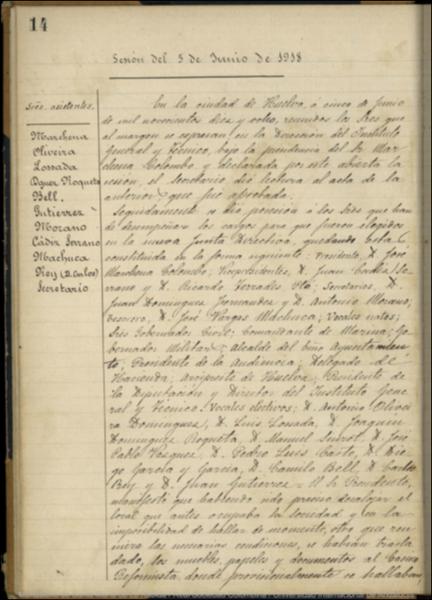 14
Sesión del 5 de Junio de 1918
Sres. asistentes.
Marchena
Oliveira
Lossada
Dguez Roqueta
Bell.
Gutierrez
Morano
Cádiz Serrano
Machuca
Rey (D. Carlos)
Secretario
En la ciudad de Huelva, á cinco de Junio
de mil novecientos diez y ocho, reunidos los Sres que
al margen se expresan, en la Dirección del Instituto
General y Técnico, bajo la presidencia del Sr. Mar
chena Colombo, y declarada por este abierta la
sesión, el Secretario dió lectura al acta de la
anterior que fué aprobada.
Seguidamente se dió posesión á los Sres que han
de desempeñar los cargos para que fueron elegidos
en la nueva Junta Directiva, quedando esta
constituida en la forma siguiente: Presidente, D. José
Marchena Colombo; Vicepresidentes, D. Juan Cádiz Se
rrano y D. Ricardo Terrades Plá; Secretarios, D.
Juan Dominguez Fernandez y D. Antonio Morano;
Tesorero, D. José Vargas Machuca; Vocales natos;
Sres Gobernador Civil; Comandante de Marina; Go
bernador Militar; Alcalde del Excmo Ayuntamien
to; Presidente de la Audiencia; Delegado de
Hacienda; Arcipreste de Huelva; Presidente de
la Diputación y Director del Instituto Gene
ral y Técnico. Vocales electivos; D. Antonio Olivei
ra Dominguez, D. Luis Lossada, D. Joaquin
Dominguez Roqueta, D. Manuel Siurot, D. José
Pablo Vazquez, D. Pedro Luis Casto, D. Die
go Garcia y Garcia, D. Camilo Bell, D. Carlos
Rey y D. Juan Gutierrez. El Sr. Presidente,
manifestó que habiendo sido preciso desalojar el
local que antes ocupaba la sociedad y en la
imposibilidad de hallar de momento, otro que reu
niera las necesarias condiciones, se habian trasla
dado, los muebles, papeles y documentos al Casino
Reformista, donde provisionalmente se hallaban